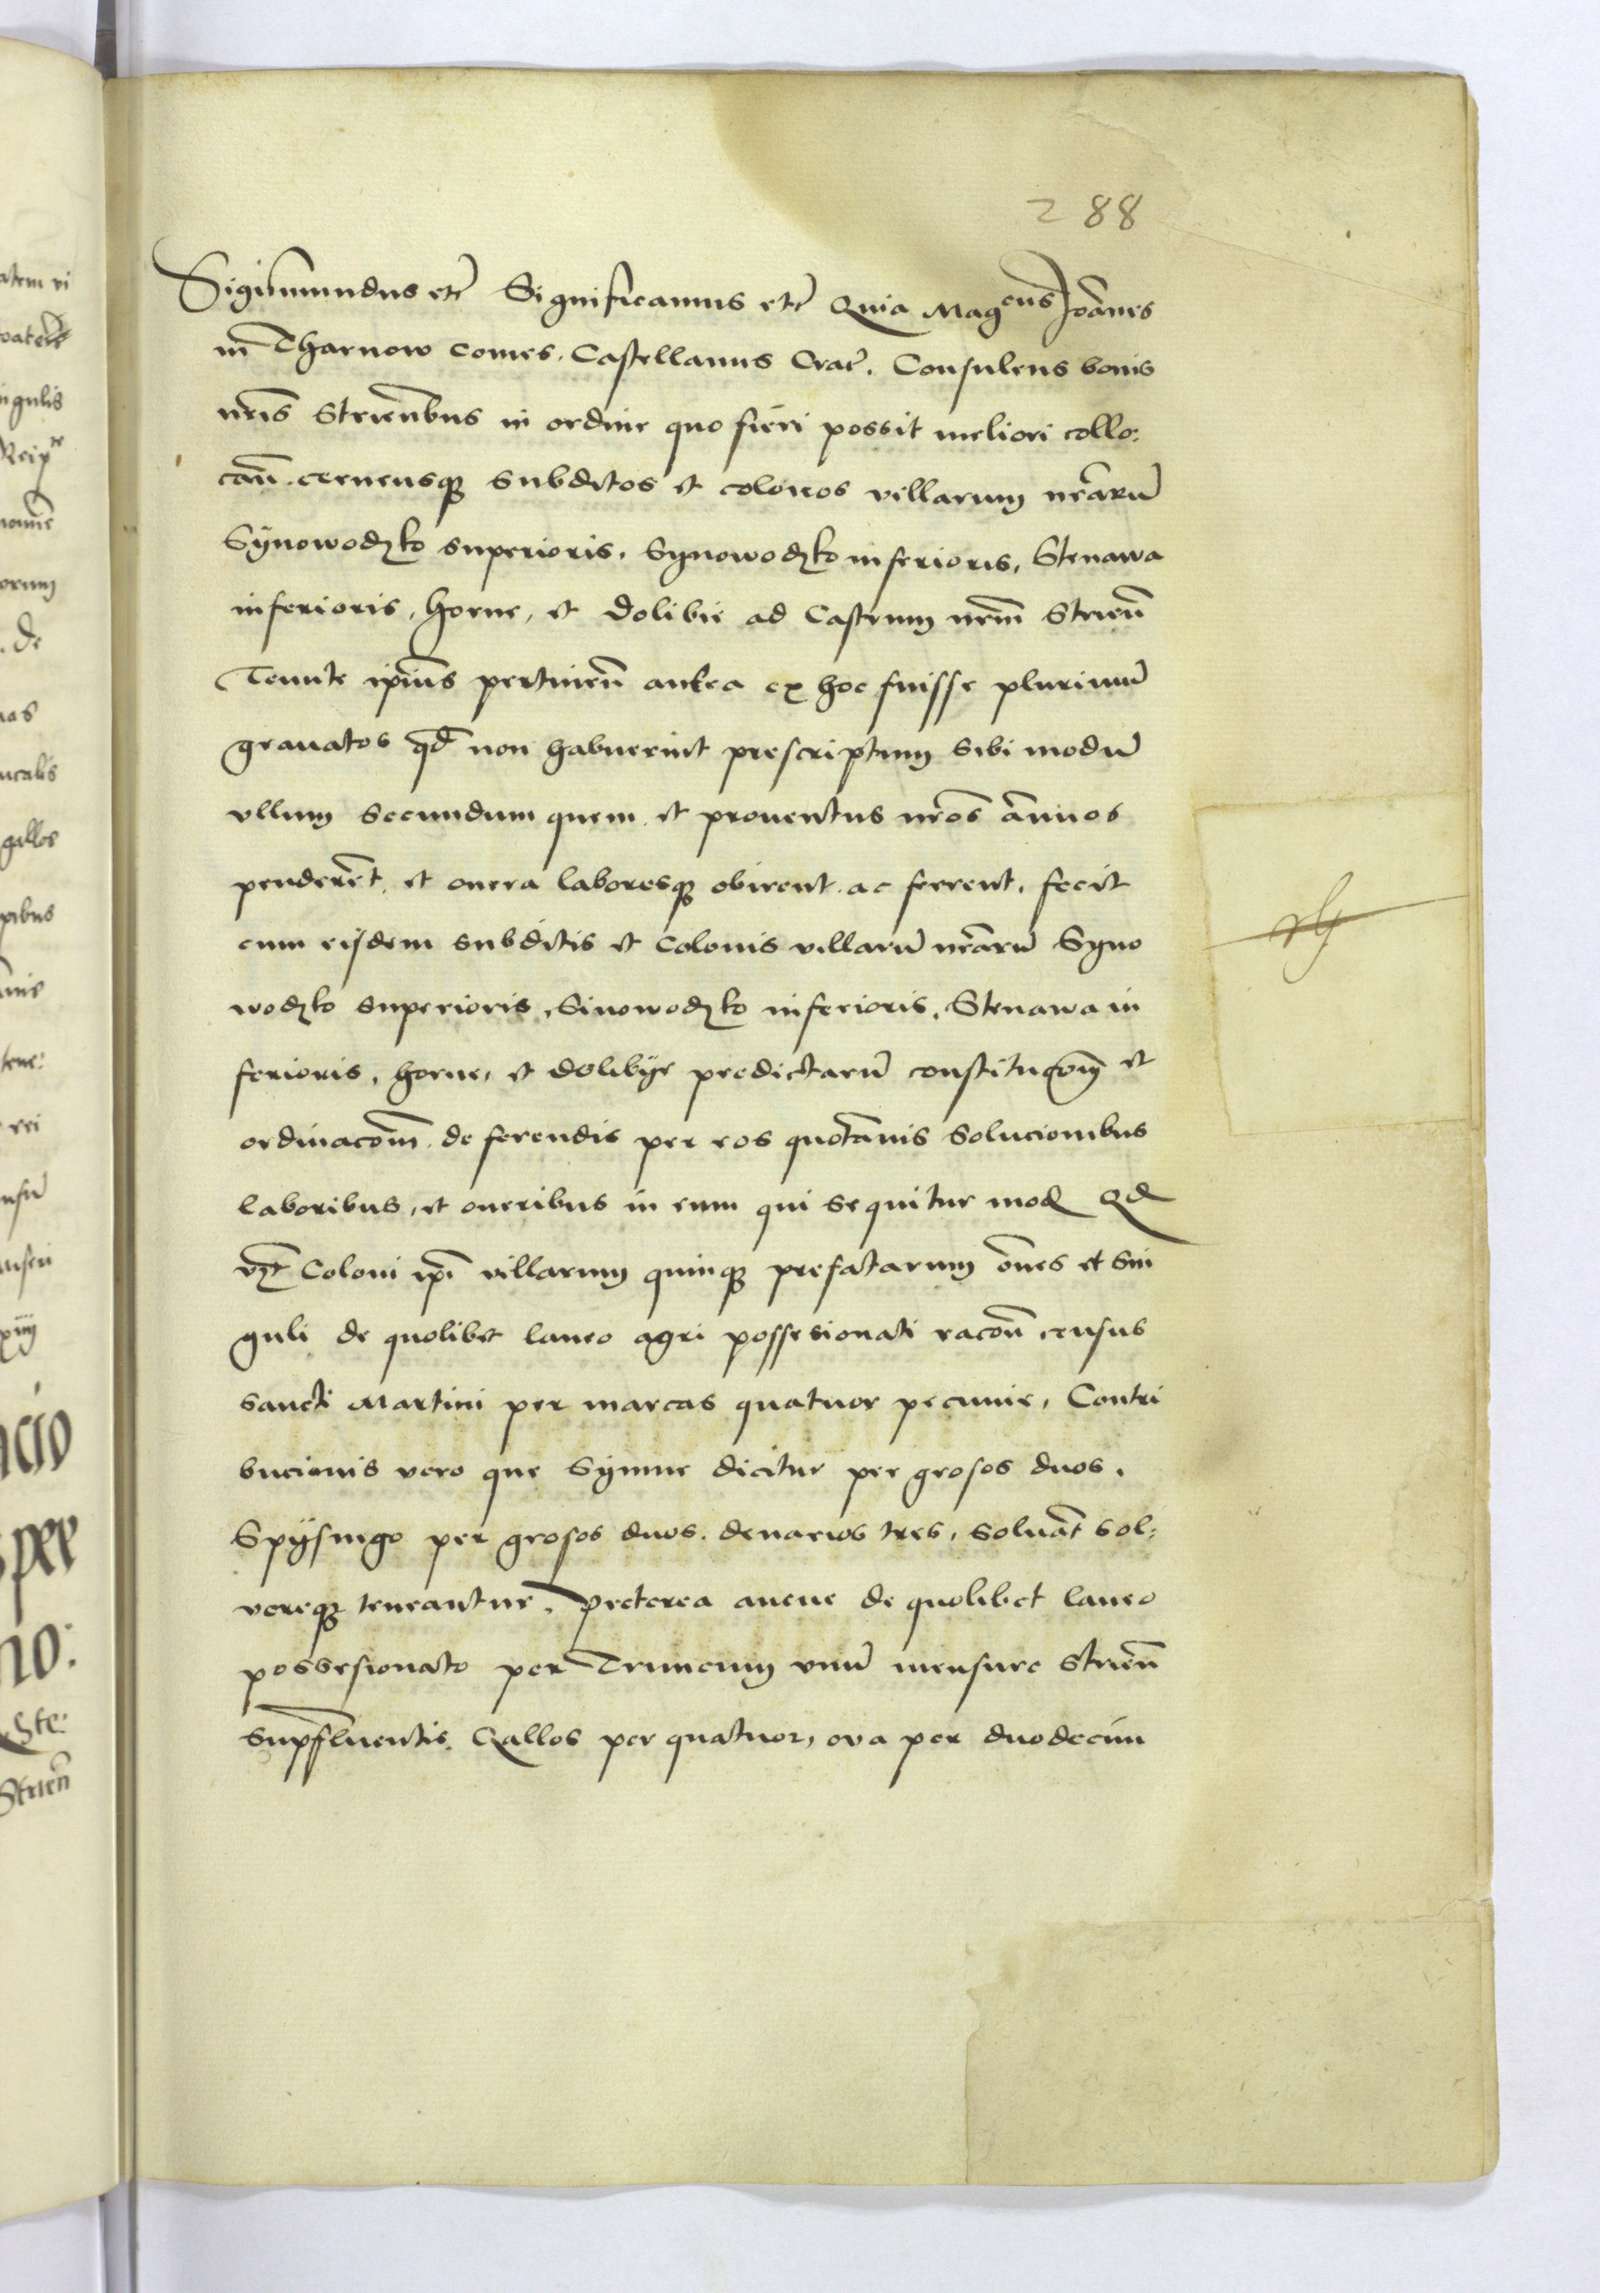 288
Sigismundus etc̄ Significamus etc̄ Quia Mag͡cus Joānes
in Tharnow comes. Castellanus Crac̄. Consulens bonis
nr̄is Strien̄bus in ordine quo fieri possit meliori collo:
can̄. cernensqꝫ subditos et colonos villarum nr̄arū
Sÿnowodzko superioris. Synowodzko inferioris, Stenawa
inferioris, horne, et dolibie ad Castrum nr̄m Strien̄
Tenute ip̄ius pertinen̄ antea ex hoc fuisse plurimū
grauatos qd̄ non habuerint prescriptum sibi modū
vllum secundum quem et prouentus nr̄os ānuos
pendere͂t et onera laboresqꝫ obirent ac ferrent. fecit
cum eijsdem subditis et colonis villarū nr̄arū Syno
wodzko superioris, Sinowodzko inferioris. Stenawa in
ferioris, horne, et dolibÿe predictarū constitucōm et
ordinacōm de ferendis per eos quotānis solucionibus
laboribus, et oneribus in eum qui sequitur mod Qd
vꝫt Coloni ip̄i villarum quinqꝫ prefatarum ōnes et sin
guli de quolibet laneo agri possesionati racōn census
sancti Martini per marcas quatuor pecunie, Contri
bucionis vero que Sÿnne dicitur per grosos duos.
Spÿsnego per grosos duos. denarios tres, soluāt sol:
vereqꝫ teneantur. preterea auene de quolibet laneo
possesionato per Truncum vnū mensure Strien̄
supf̄luentis. Gallos per quatuor, ova per duodecim